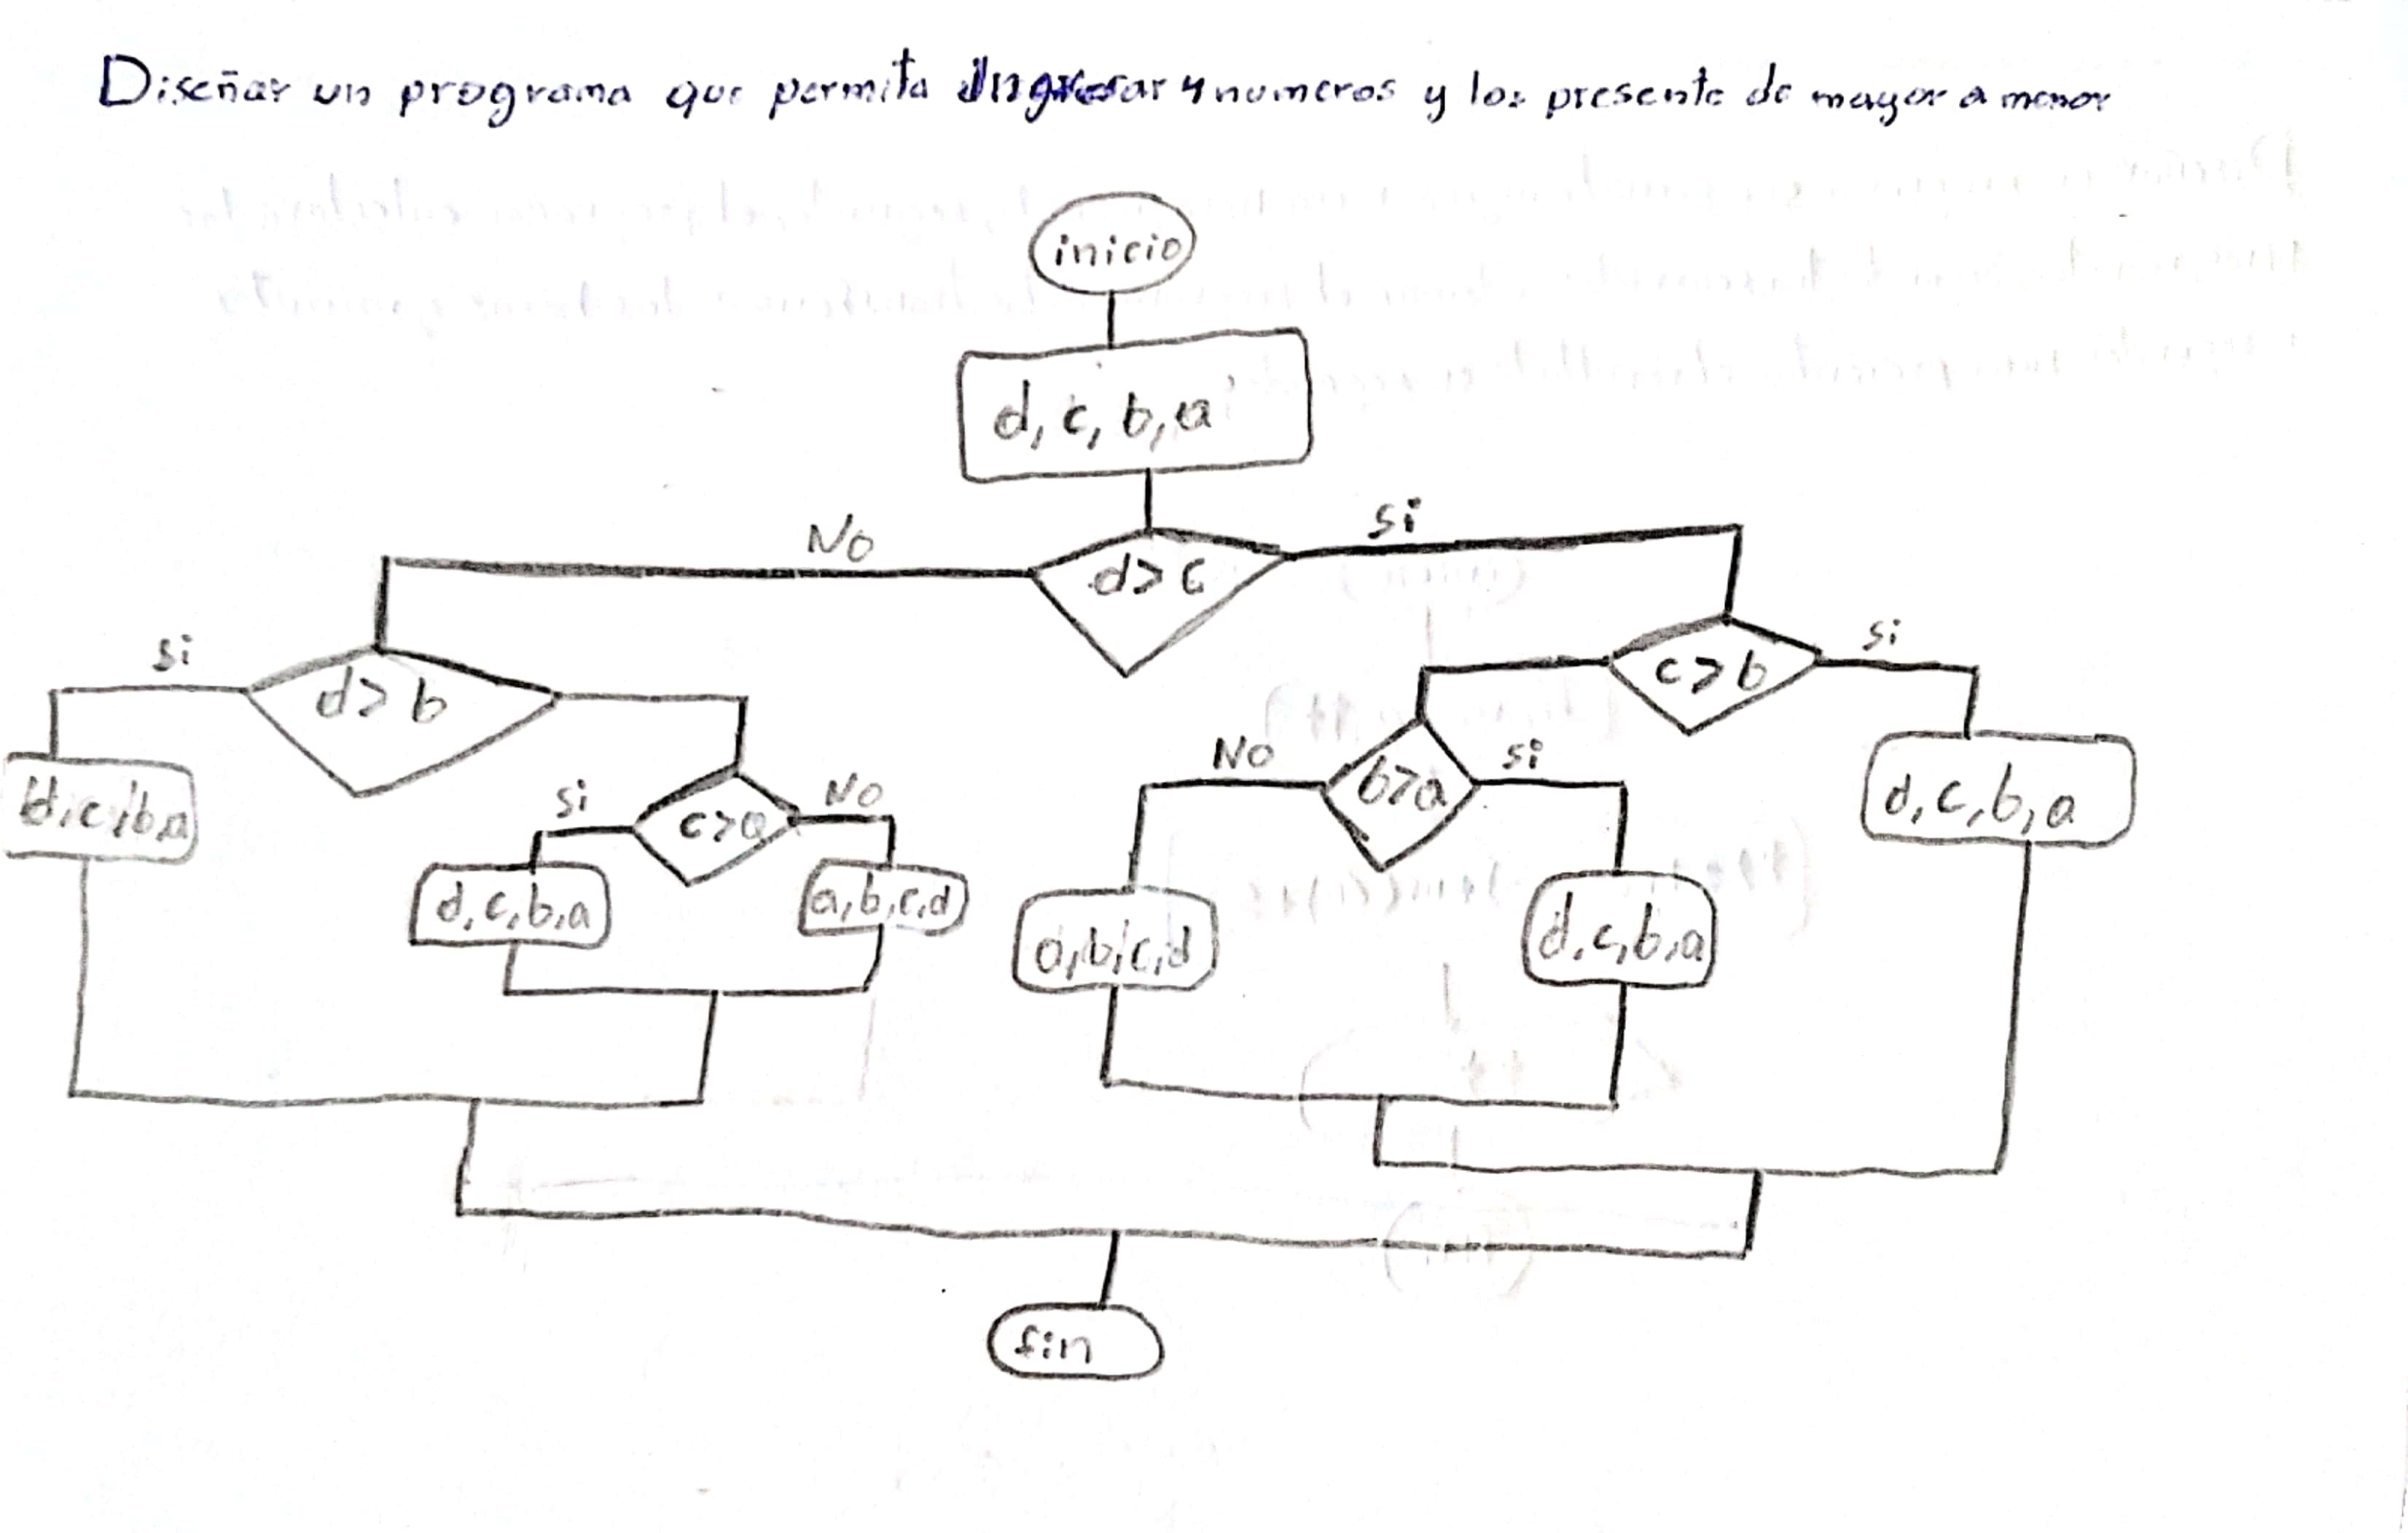 Diseñar un programa que permita Ingresar 4 numeros y los presente de mayor a menor
inicio
d, c, b, a
No
si
d > c
si
si
d > b
c > b
No
si
b > a
d, c, b, a
d, c, b, a
si
No
c > a
d, c, b, a
a, b, c, d
a, b, c, d
d, c, b, a
fin